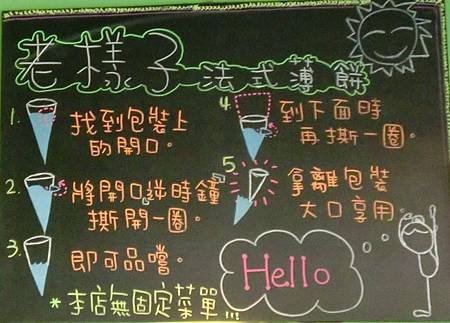 老樣子 法式薄餅
1. 找到包裝上
的開口。
2. 將開口逆時鐘
撕開一圈。
3. 即可品嚐。
4. 到下面時
再撕一圈。
5. 拿離包裝
大口享用。
Hello
*本店無固定菜單!!!